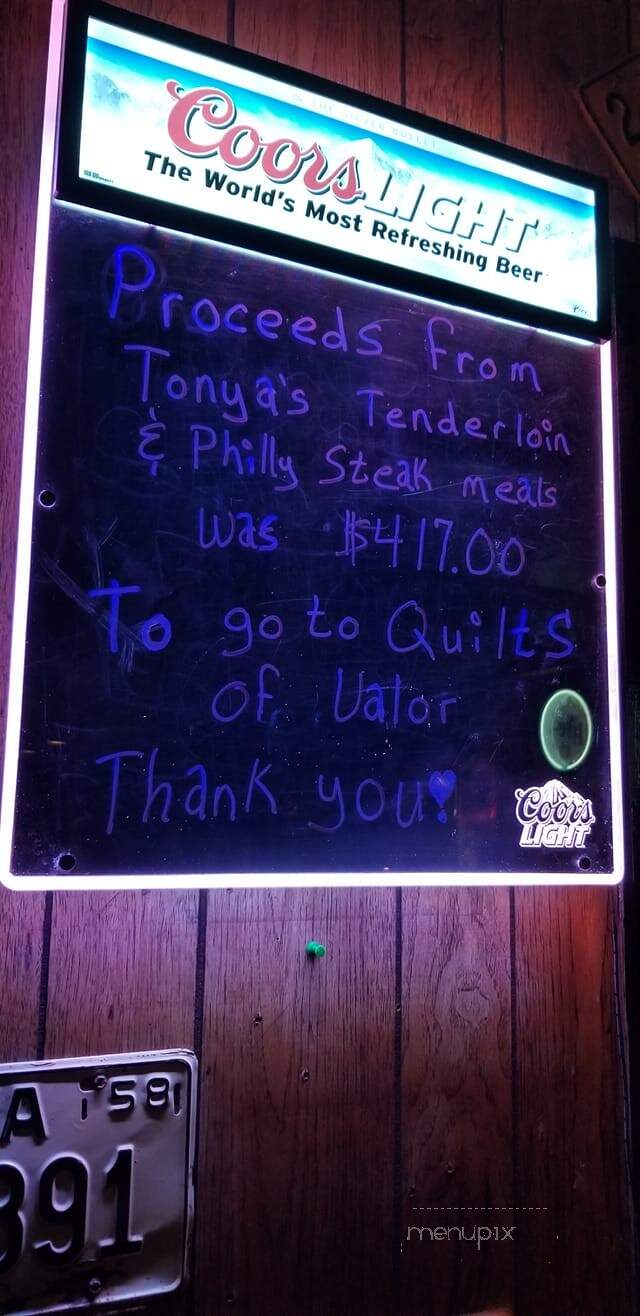 THE SILVER BULLET
Coors LIGHT
The World's Most Refreshing Beer
Proceeds from
Tonya's Tenderloin
& Philly Steak meals
was $417.00
To go to Quilts
of Valor
Thank you!
Coors
LIGHT
A 58
391
2
menupix